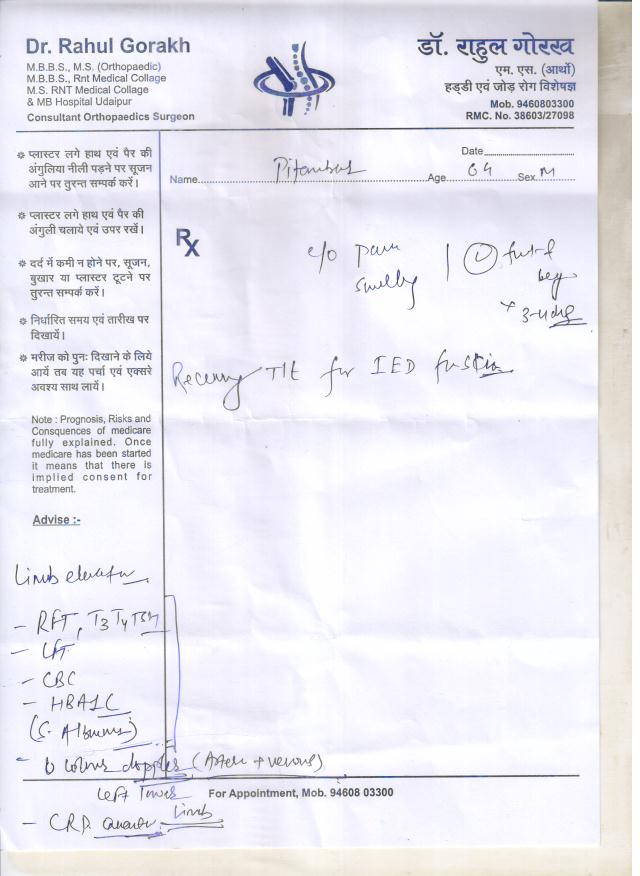 Dr. Rahul Gorakh
M.B.B.S., M.S. (Orthopaedic)
M.B.B.S., Rnt Medical Collage
M.S. RNT Medical Collage
& MB Hospital Udaipur
Consultant Orthopaedics Surgeon
डॉ. राहुल गोरख
एम. एस. (आर्थो)
हड्डी एवं जोड़ रोग विशेषज्ञ
Mob. 9460803300
RMC. No. 38603/27098
Date
Name Pitambar Age 64 Sex M
प्लास्टर लगे हाथ एवं पैर की
अंगुलिया नीली पड़ने पर सूजन
आने पर तुरन्त सम्पर्क करें।
प्लास्टर लगे हाथ एवं पैर की
अंगुली चलाये एवं उपर रखें।
दर्द में कमी न होने पर, सूजन,
बुखार या प्लास्टर टूटने पर
तुरन्त सम्पर्क करें।
निर्धारित समय एवं तारीख पर
दिखायें।
मरीज को पुनः दिखाने के लिये
आयें तब यह पर्चा एवं एक्सरे
अवश्य साथ लायें।
Note : Prognosis, Risks and
Consquences of medicare
fully explained. Once
medicare has been started
it means that there is
implied consent for
treatment.
Rx
c/o pain
swelling
Ⓛ foot &
leg
× 3-4 days
for
Advise :-
Limb elevation
- RFT, T3 T4 TSH
- LFT
- CBC
- HBA1C
(S. Albumin)
- colour doppler (Arterial + venous)
left lower
limb
For Appointment, Mob. 94608 03300